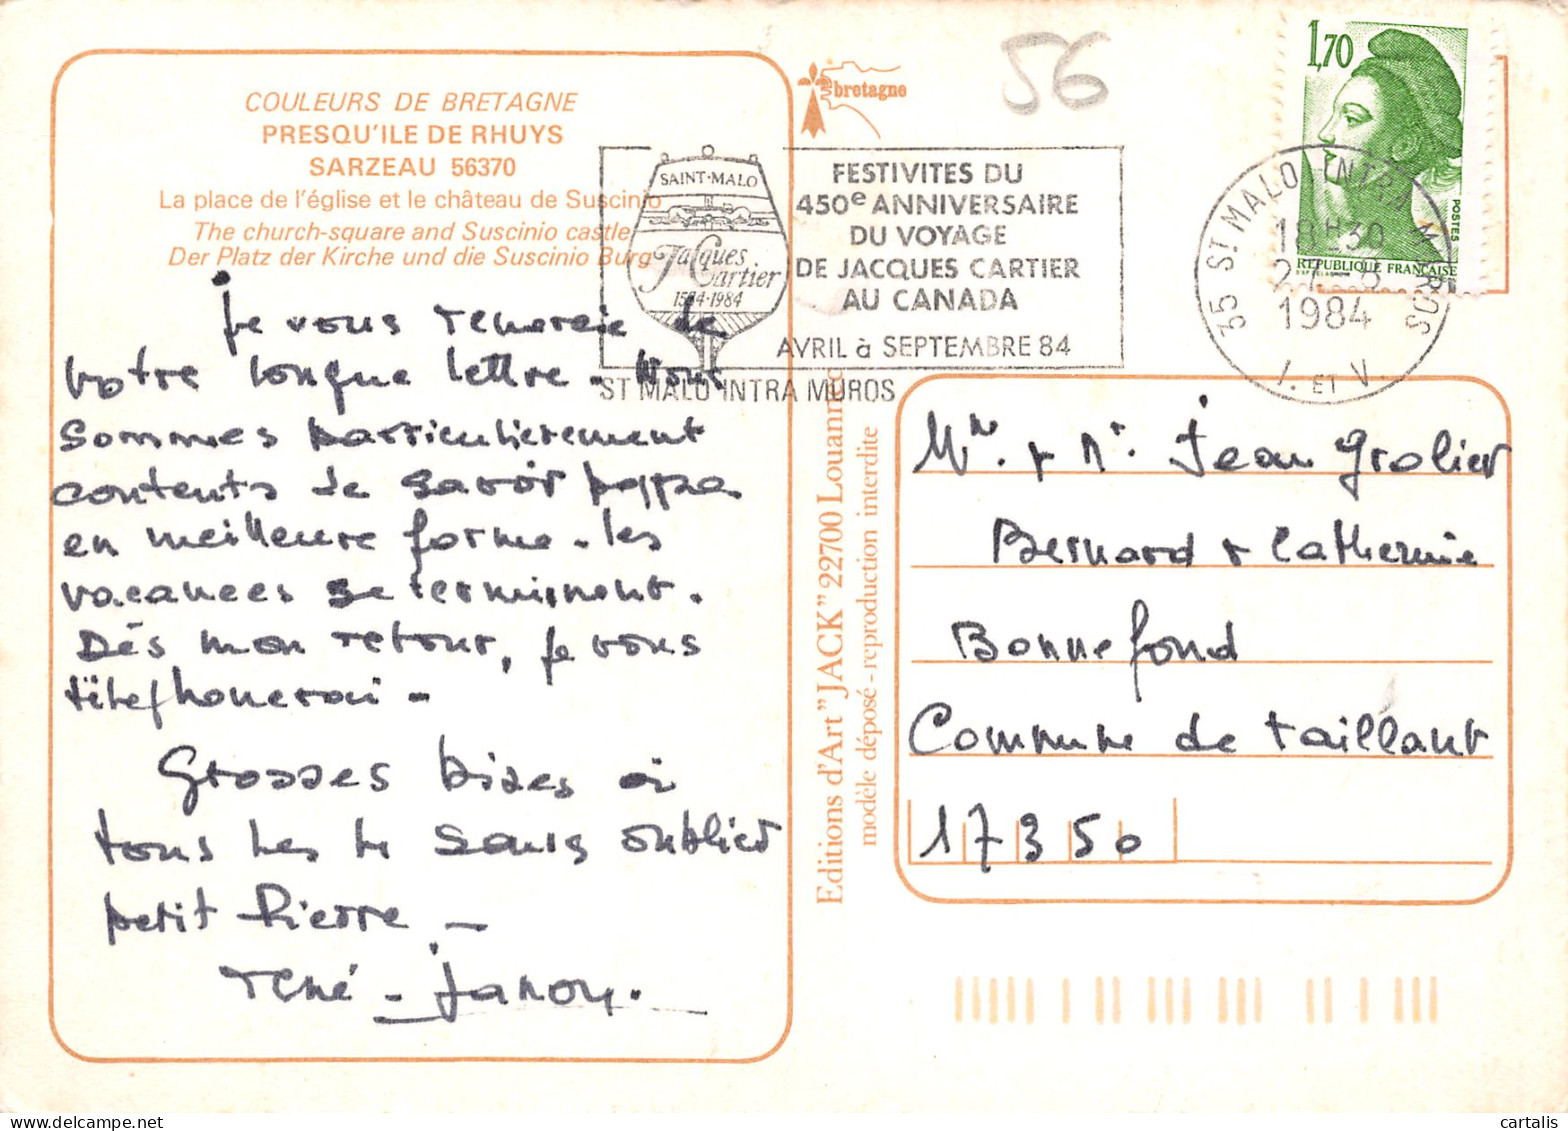 COULEURS DE BRETAGNE
PRESQU'ILE DE RHUYS
SARZEAU 56370
La place de l'église et le château de Suscinio
The church-square and Suscinio castle
Der Platz der Kirche und die Suscinio Burg
Je vous remercie de
votre longue lettre. Nous
sommes particulièrement
contents de savoir
en meilleure forme. les
vacances se terminent.
Dès mon retour, je vous
téléphonerai -
Grosses bises à
tous les sans oublier
petit Pierre -
René -
bretagne
56
SAINT-MALO
Jacques
Cartier
1534-1984
FESTIVITES DU
450e ANNIVERSAIRE
DU VOYAGE
DE JACQUES CARTIER
AU CANADA
AVRIL à SEPTEMBRE 84
ST MALO INTRA MUROS
1,70
POSTES
REPUBLIQUE FRANÇAISE
35 ST MALO INTRA MUROS
18H30
1984
I. ET V.
Editions d'Art "JACK" 22700 Louannec
modèle déposé - reproduction interdite
Mme. & Mr. Jean Grolier
Bernard & Catherine
Bonnefond
Commune de taillant
17350
cartalis